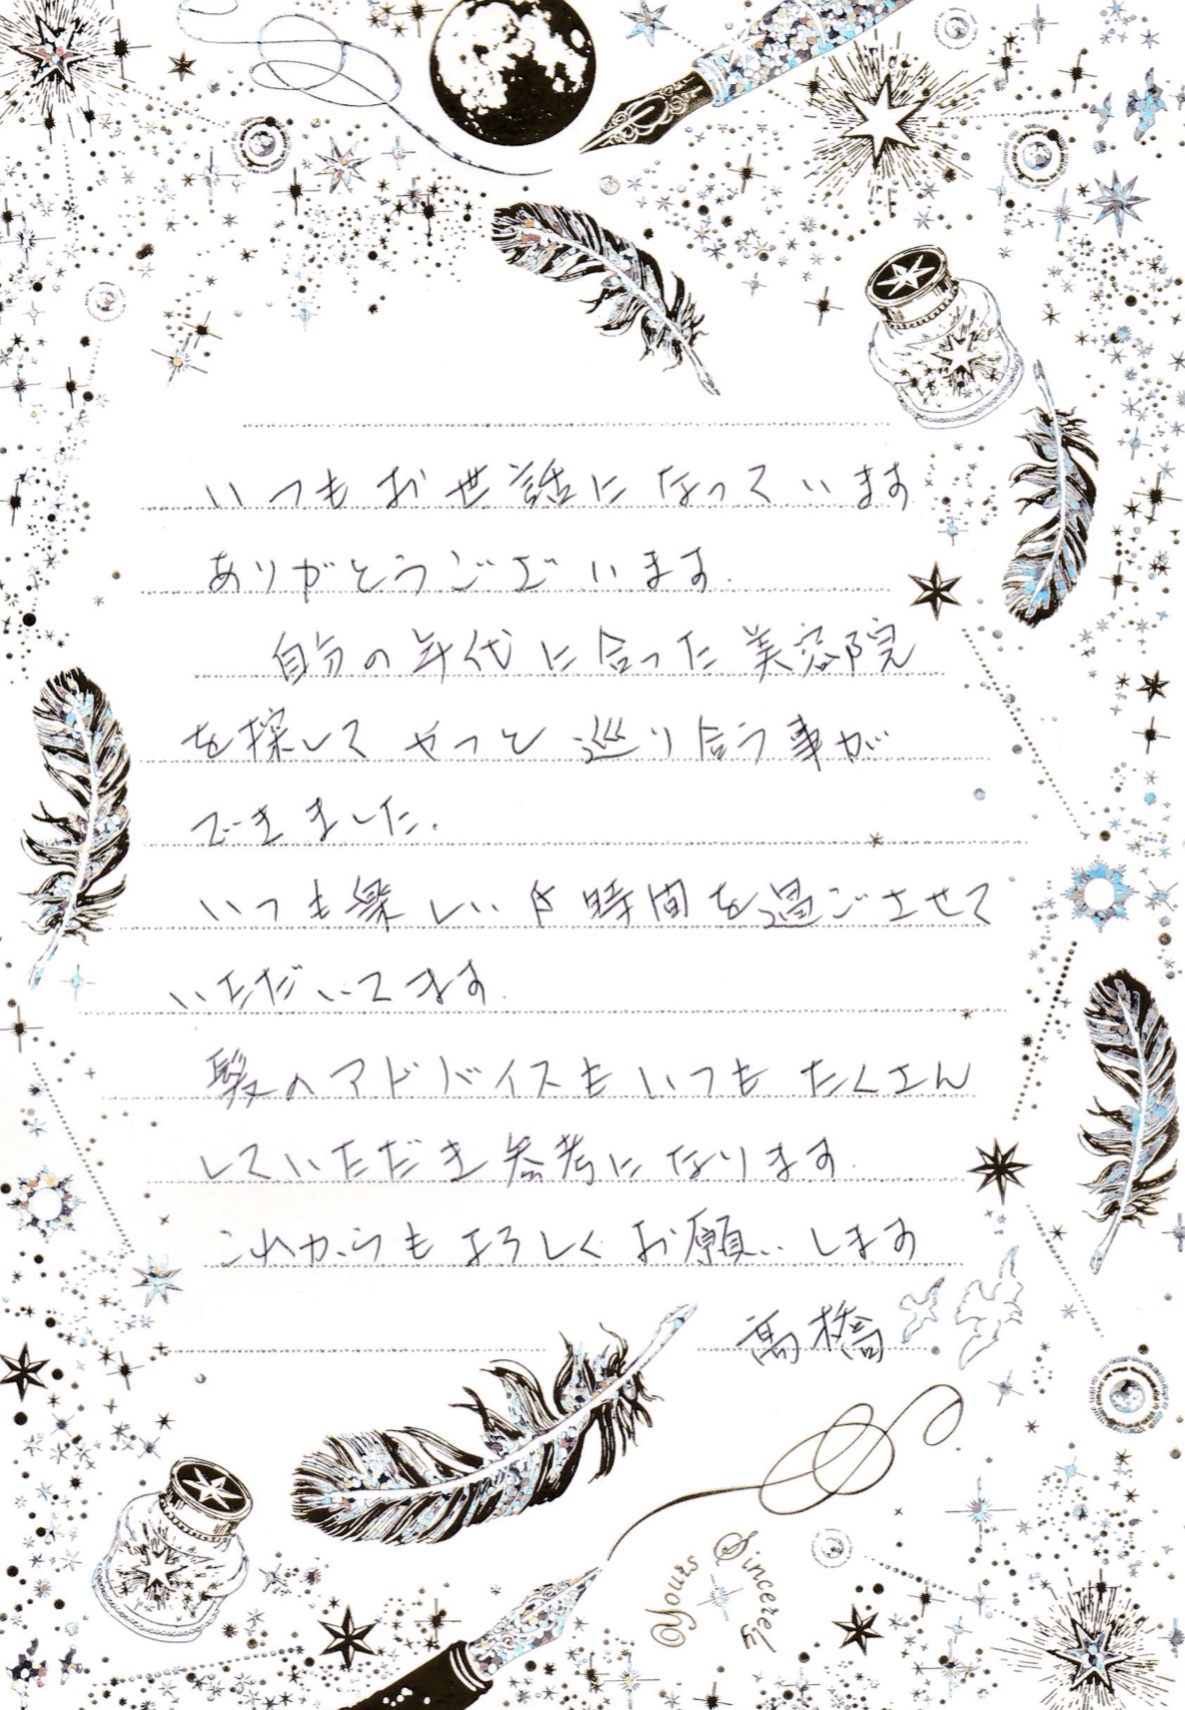 いつもお世話になっています
ありがとうございます.
自分の年代に合った美容院
を探してやっと巡り合う事が
できました.
いつも楽しいき時間を過ごさせて
いただいてます.
髪のアドバイスもいつもたくさん
していただき参考になります.
これからもよろしくお願いします
高橋
Yours Sincerely